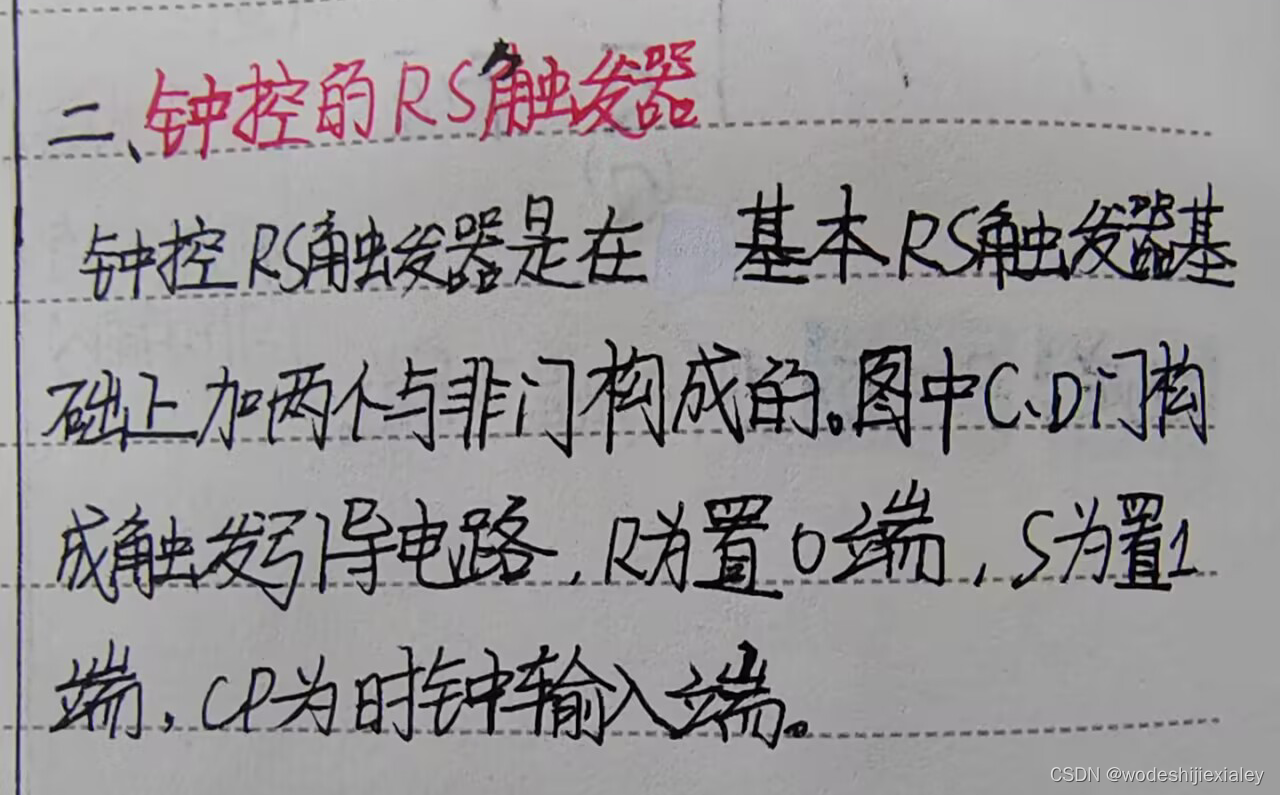 二、钟控的RS触发器
钟控RS触发器是在 基本RS触发器基
础上加两个与非门构成的。图中C、D门构
成触发引导电路，R为置0端，S为置1
端，CP为时钟输入端。
CSDN @wodeshijiexialey